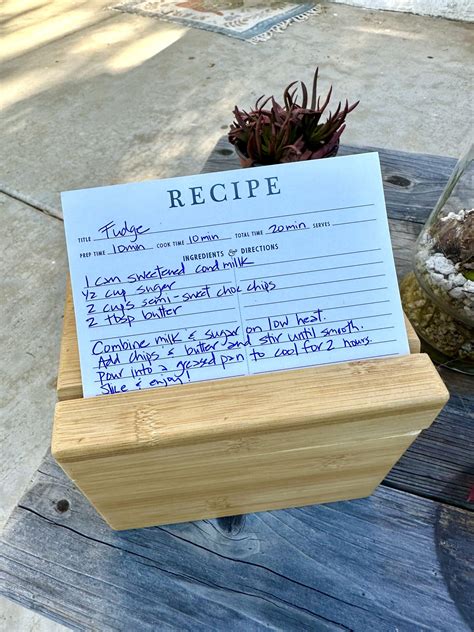 RECIPE
TITLE Fudge
PREP TIME 10min COOK TIME 10min TOTAL TIME 20min SERVES
INGREDIENTS & DIRECTIONS
1 can sweetened cond milk
1/2 cup sugar
2 cups semi-sweet choc chips
2 tbsp butter
Combine milk & sugar on low heat.
Add chips & butter and stir until smooth.
pour into a greased pan to cool for 2 hours.
Slice & enjoy!